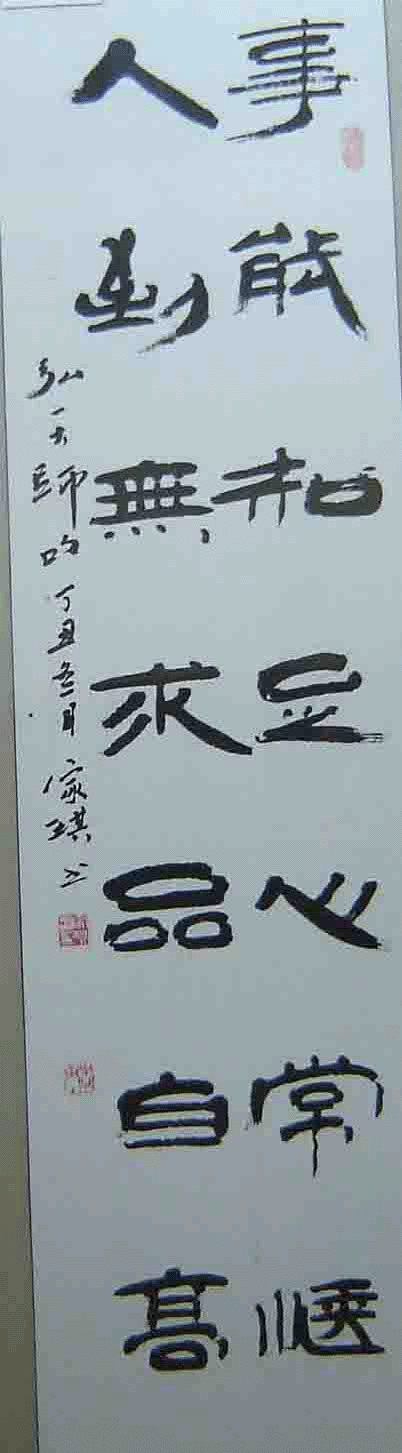 事能知足心常愜
人到無求品自高
弘一大師句 丁丑冬月 家琪书